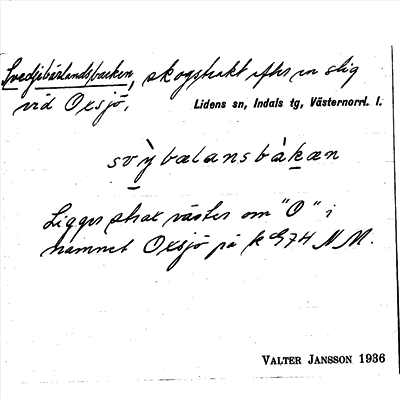 Svedjebärlandsbacken, skogstrakt efter en stig
vid Oxsjö.
Lidens sn, Indals tg, Västernorrl. l.
svỳbælansbàkæn
Ligger strax väster om "O" i
namnet Oxsjö på k G74 NM.
VALTER JANSSON 1936